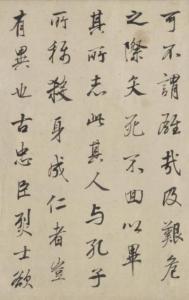 可不謂難哉及艱危
之際矢死不回以畢
其所志此其人与孔子
所称殺身成仁者豈
有異也古忠臣烈士欲